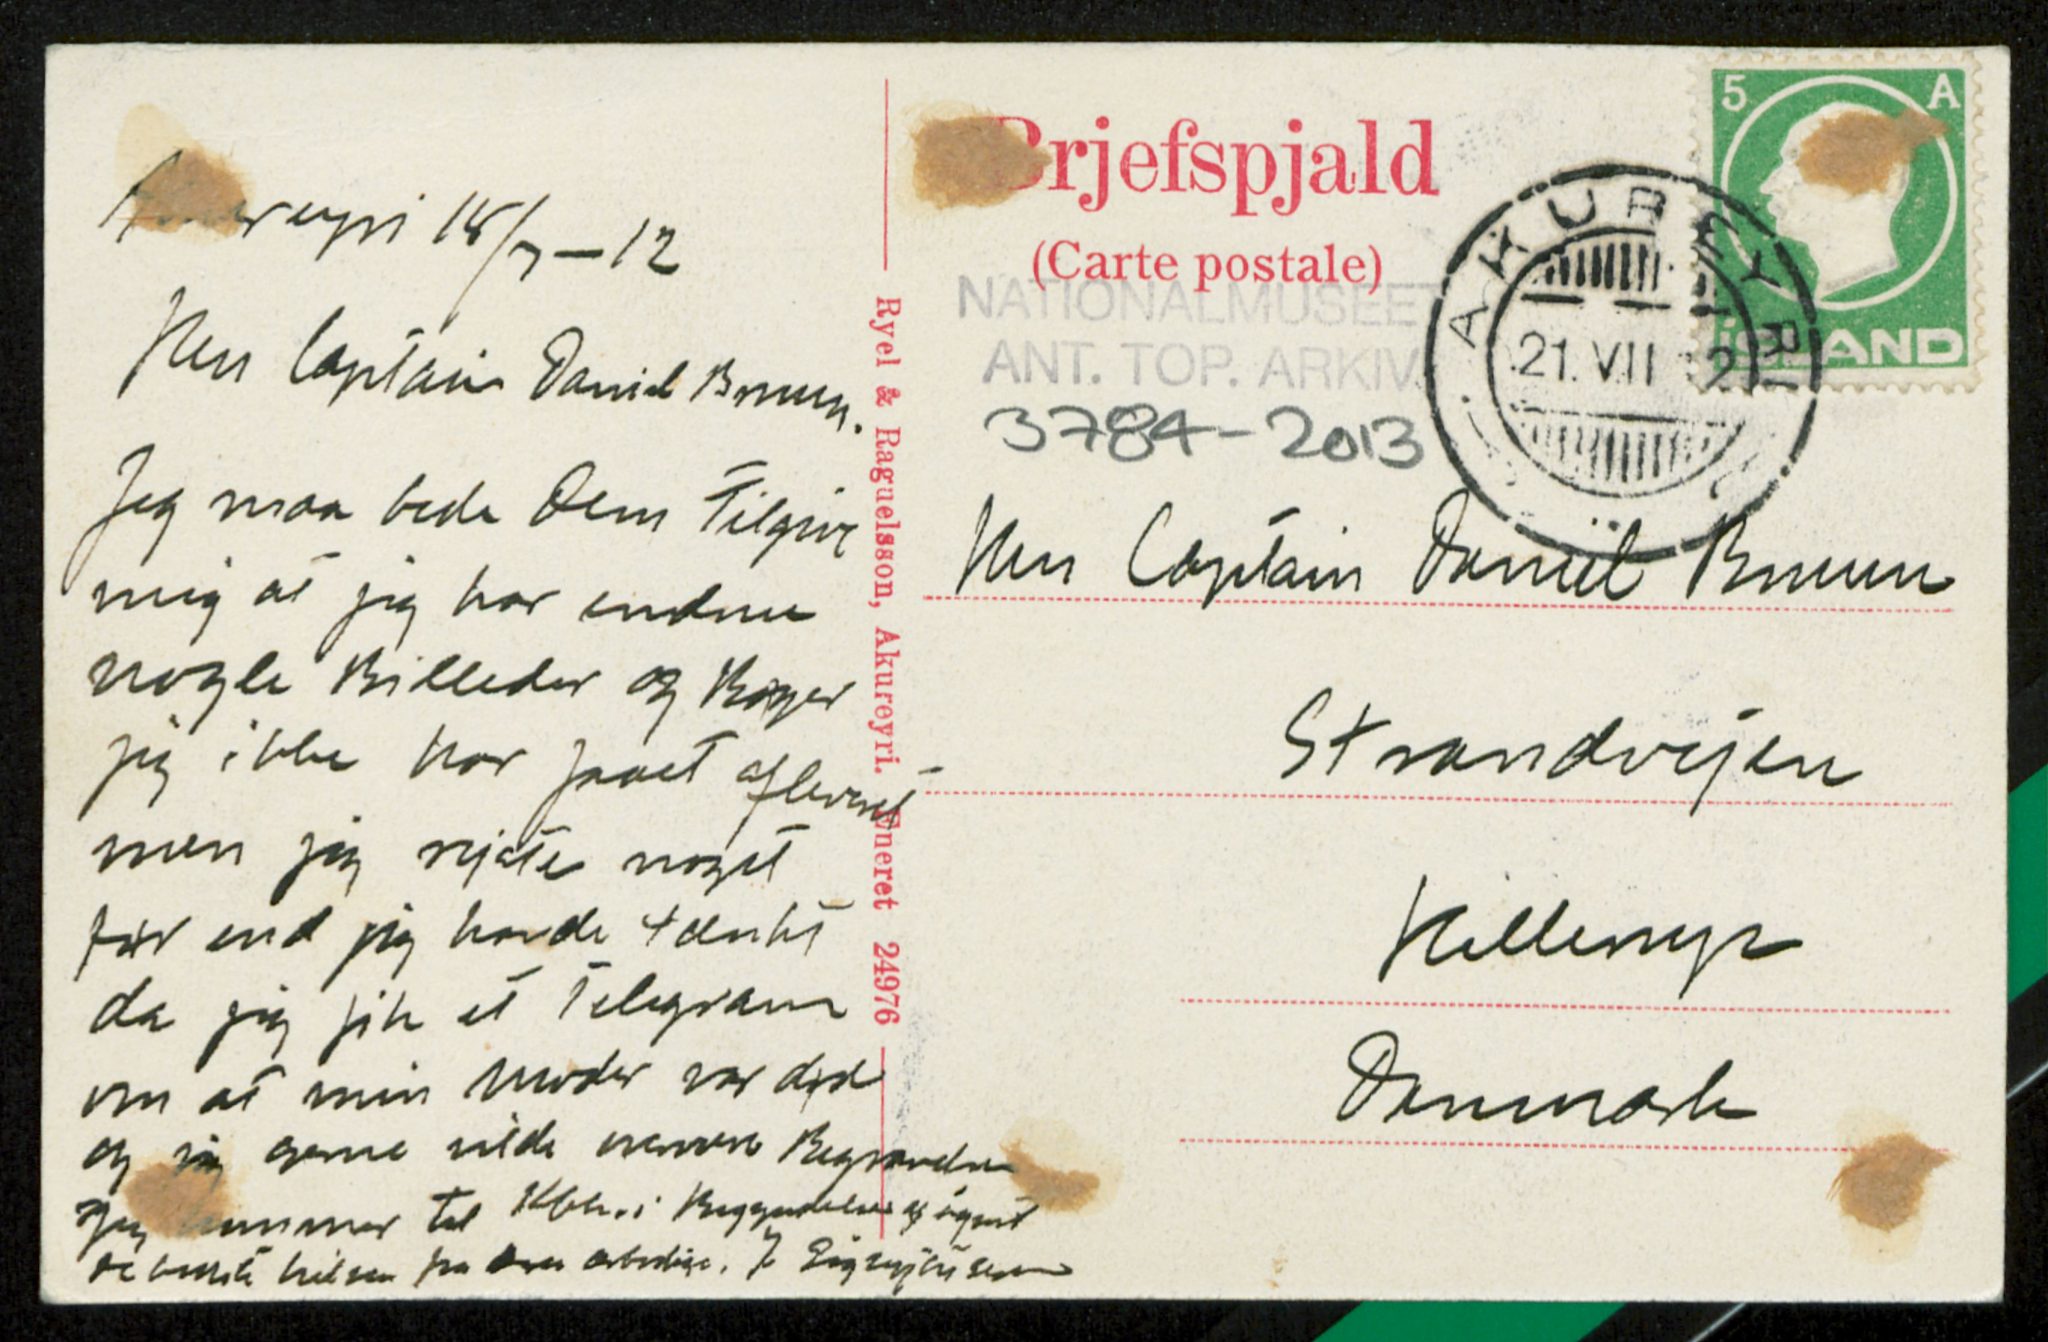 Akureyri 18/7 – 12
Herr Captain Daniel Bruun.
Jeg maa bede Dem Tilgive
mig at jeg har endnu
nogle Billeder og Bøger
jeg ikke har faaet afleveret
men jeg rejste noget
før end jeg havde tænkt
da jeg fik et Telegram
om at min Moder var død
og jeg gerne vilde overvære Begravelsen
Jeg kommer til Kbh. i Begyndelsen af ágúst
De bedste hilsen fra Deres ærbødige.
Ryel & Raguelsson, Akureyri. Eneret 24976
Brjefspjald
(Carte postale)
NATIONALMUSEET
ANT. TOP. ARKIV.
3784-2013
5 A
ÍSLAND
AKUREYRI
21. VII 12
Herr Captain Daniel Bruun
Strandvejen
Hellerup
Danmark